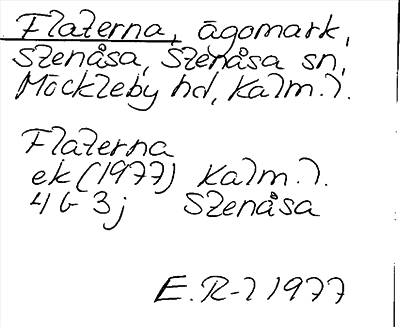 Flaterna, ägomark,
Stenåsa, Stenåsa sn,
Möckleby hd, Kalm. l.
Flaterna
ek (1977) Kalm. l.
4 G 3 j Stenåsa
E. R-l 1977